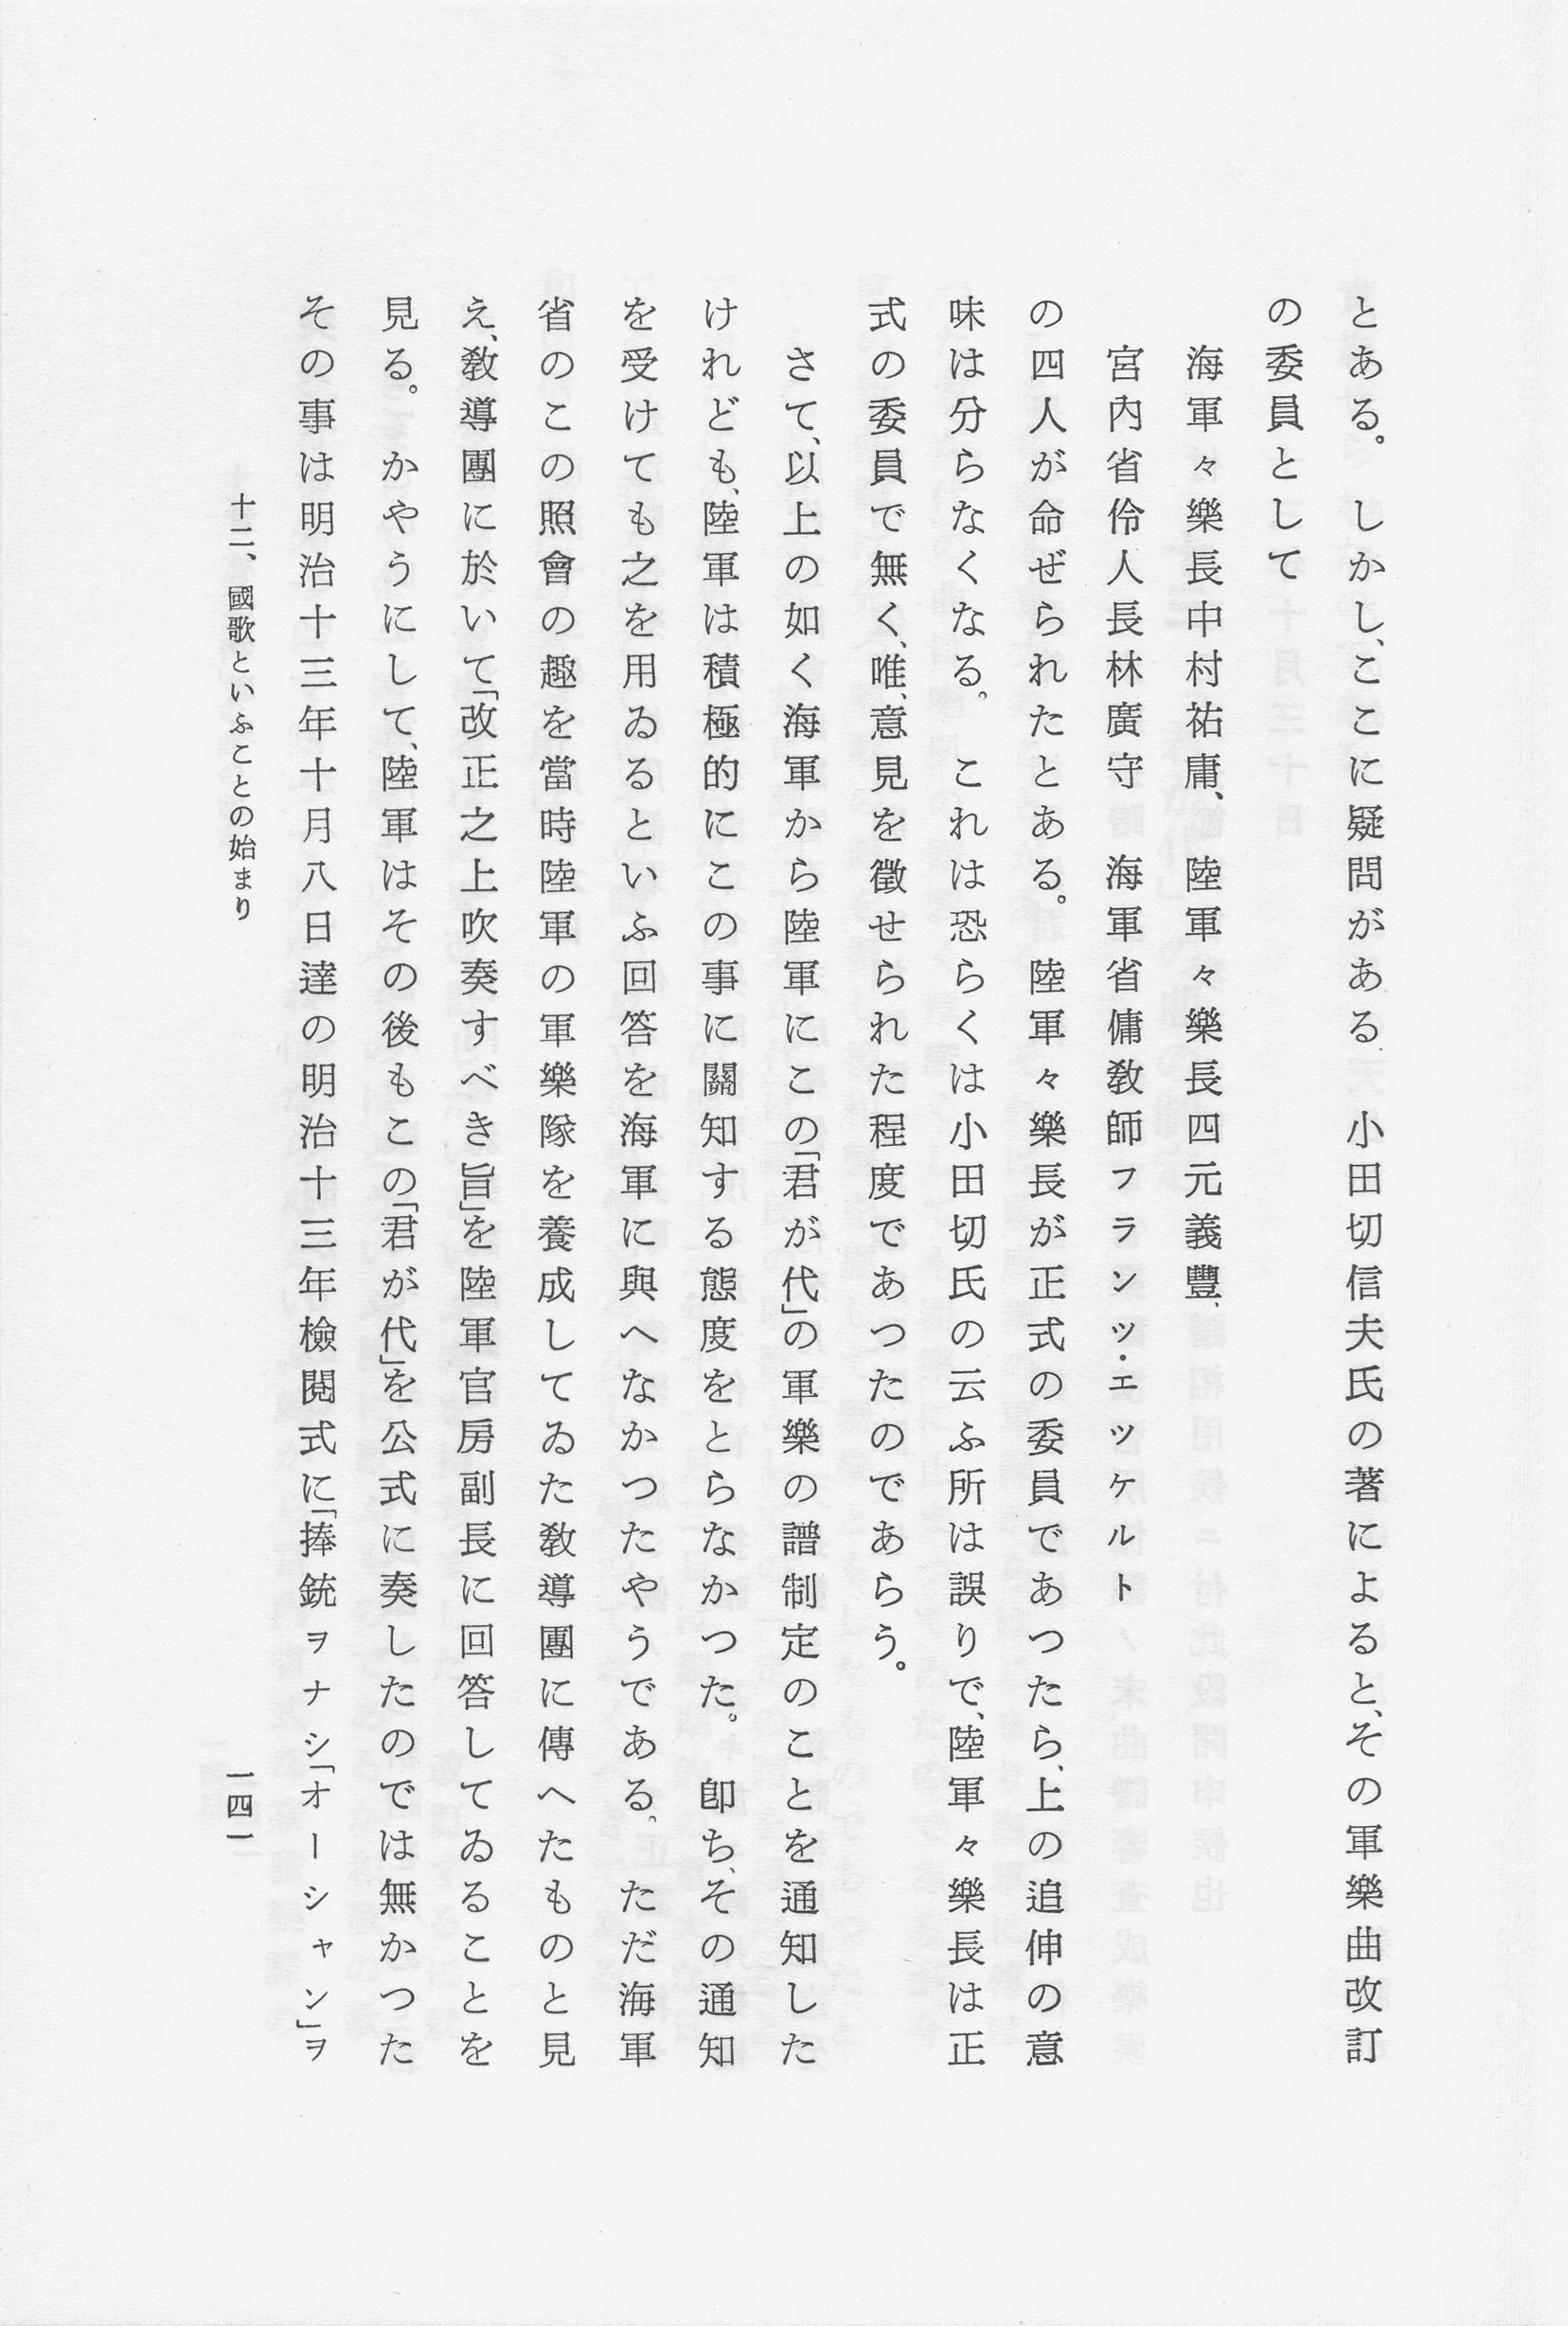 とある。　しかし、ここに疑問がある　小田切信夫氏の著によると、その軍樂曲改訂
の委員として
海軍々樂長中村祐庸、　陸軍々樂長四元義豐、
宮内省伶人長林廣守　海軍省傭敎師フランツ・エツケルト
の四人が命ぜられたとある。　陸軍々樂長が正式の委員であつたら、上の追伸の意
味は分らなくなる。　これは恐らくは小田切氏の云ふ所は誤りで、陸軍々樂長は正
式の委員で無く、唯、意見を徵せられた程度であつたのであらう。
さて、以上の如く海軍から陸軍にこの「君が代」の軍樂の譜制定のことを通知した
けれども、陸軍は積極的にこの事に關知する態度をとらなかつた。　卽ち、その通知
を受けても之を用ゐるといふ回答を海軍に與へなかつたやうである。　ただ海軍
省のこの照會の趣を當時陸軍の軍樂隊を養成してゐた敎導團に傳へたものと見
え、敎導團に於いて「改正之上吹奏すべき旨」を陸軍官房副長に回答してゐることを
見る。　かやうにして、陸軍はその後もこの「君が代」を公式に奏したのでは無かつた
その事は明治十三年十月八日達の明治十三年檢閲式に「捧銃ヲナシ「オーシャン」ヲ
十二、國歌といふことの始まり
一四一